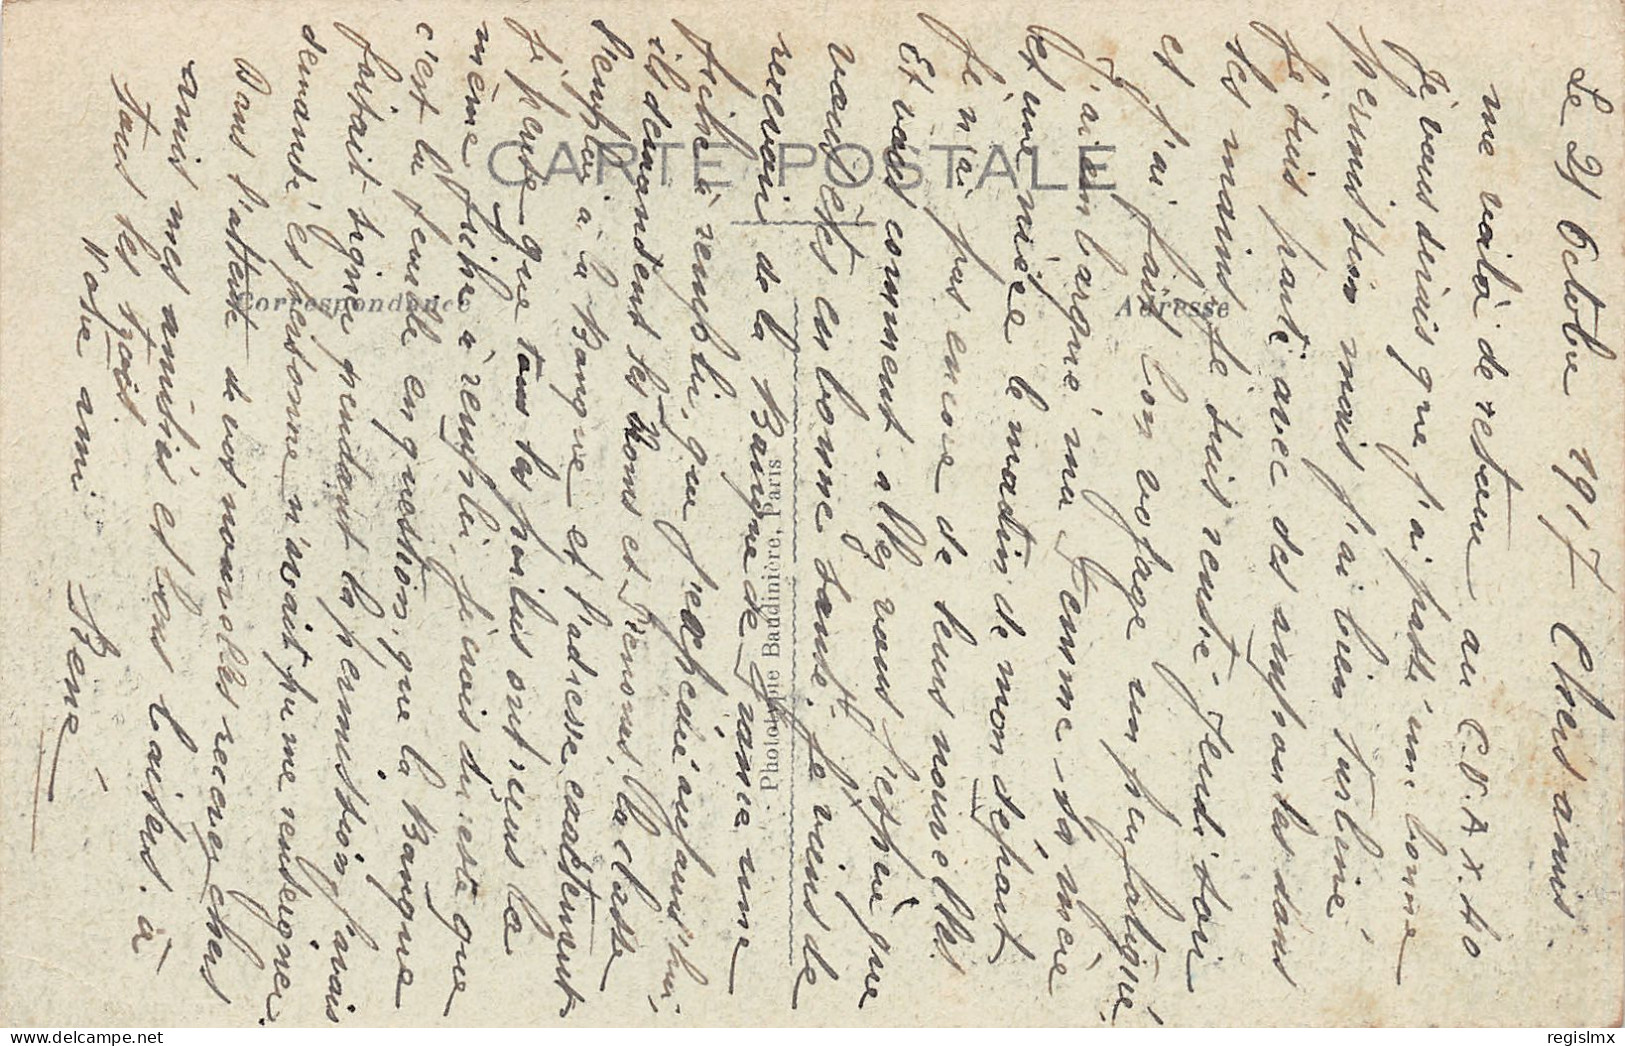 Le 21 Octobre 1917 Chers amis.
me voilà de retour au C.V.A.X.40
Je vous dirais que j'ai passé une bonne
permission mais j'ai bien turbiné
Je suis parti avec des ampoules dans
les mains Je suis rentré Jeudi soir
et j'ai fais bon voyage un peu fatigué.
J'ai embarqué ma femme sa mère
et une nièce le matin de mon départ
Je n'ai pas encore de leurs nouvelles
Et vous comment allez vous j'espère que
vous êtes en bonne santé. Je viens de
recevoir de la Banque de France une
fiche à remplir, que j'expédie aujourd'hui
ils demandent les Noms et Prénoms, la classe
l'emploi à la Banque et l'adresse exactement
Je pense que tous les poilus ont reçus la
même fiche à remplir. Je crois du reste que
c'est la feuille en question que la Banque
faisait signé pendant la permission j'avais
demandé et personne n'avait pu me renseigner
Dans l'attente de vos nouvelles recevez chers
amis mes amitiés et bons baisers à
tous les trois.
Votre ami
René
CARTE POSTALE
Correspondance
Adresse
Phototypie Baudinière, Paris
delcampe.net
regislmx